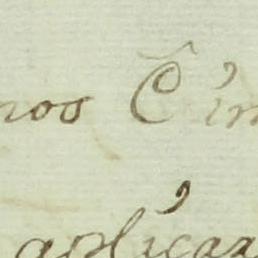 nos C im
aplicar